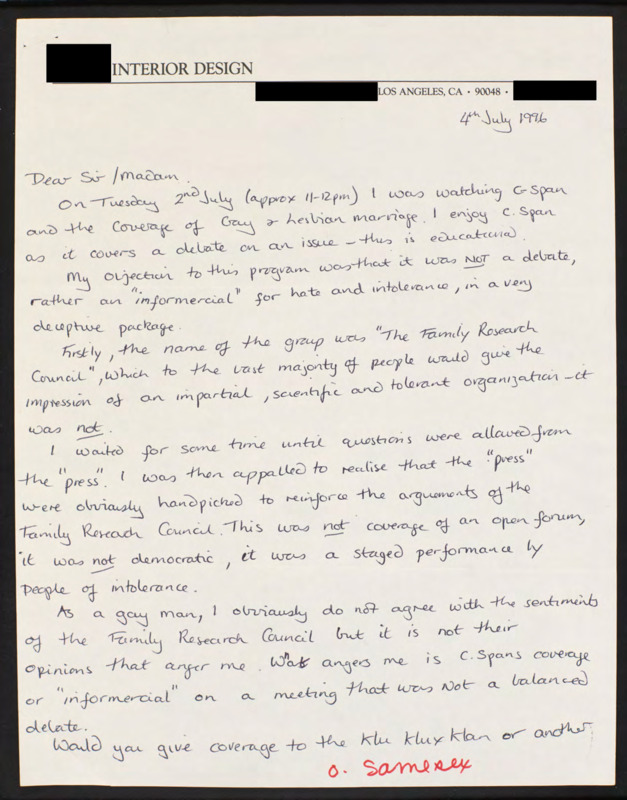 INTERIOR DESIGN
LOS ANGELES, CA • 90048 •
4th July 1996
Dear Sir/Madam.
On Tuesday 2nd July (approx 11-12pm) I was watching C-Span
and the coverage of Gay & Lesbian marriage. I enjoy C.Span
as it covers a debate on an issue – this is educational.
My objection to this program was that it was NOT a debate,
rather an "informercial" for hate and intolerance, in a very
deceptive package.
Firstly, the name of the group was "The Family Research
Council", which to the vast majority of people would give the
impression of an impartial, scientific and tolerant organization – it
was not.
I waited for some time until questions were allowed from
the "press". I was then appalled to realise that the "press"
were obviously handpicked to reinforce the arguements of the
Family Reseach Council. This was not coverage of an open forum,
it was not democratic, it was a staged performance by
people of intolerance.
As a gay man, I obviously do not agree with the sentiments
of the Family Research Council but it is not their
opinions that anger me. What angers me is C.Spans coverage
or "informercial" on a meeting that was Not a balanced
debate.
Would you give coverage to the Klu Klux Klan or another
o. Samesex